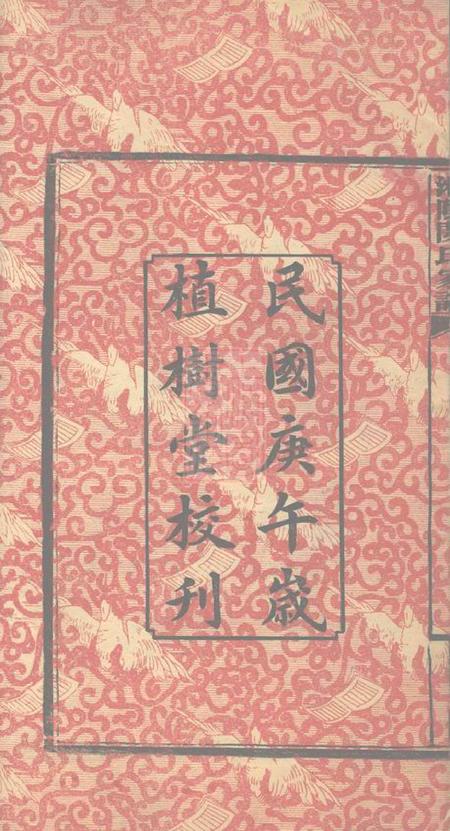 民國庚午歲
植樹堂校刊